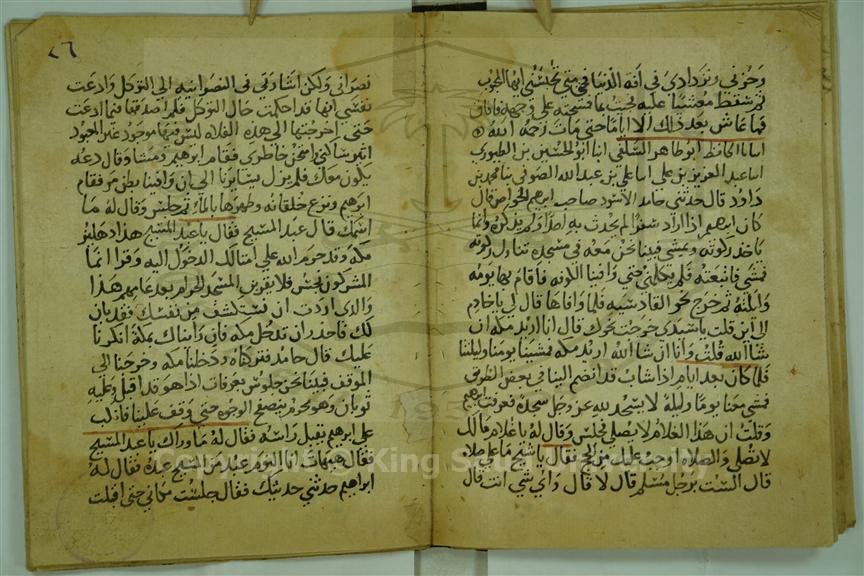 وحزني ويزداد في في آفة الدنيا في متى تحبسني ايها المحبوب
ثم سقط مغشيا عليه فجيت بماء فسحته على وجهه فافاق
فما عاش بعد ذلك الا اياما حتى مات رحمه الله ه
انبانا الحافظ ابو طاهر السلفي انا ابو الحسين بن الطيوري
انا عبد العزيز بن علي انا علي بن عبد الله الصوفي نا محمد بن
داود قال حدثني حامد الاسود صاحب ابرهيم الخواص قال
كان ابرهيم اذا اراد سفرا لم يحدث به احدا ولم يذكره وانما
ياخذ ركوته ويمشي فبينا نحن معه في مسجده تناول ركوته
فمشى فاتبعته فلم يكلمني حتى وافينا الكوفه فاقام بها يومه
وليلته ثم خرج نحو القادسيه فلما وافاها قال لي يا حامد
الى اين قلت يا سيدي خرجت بخروجك قال انا اريد مكه ان
شا الله قلت وانا ان شا الله اريد مكه فمشينا يومنا وليلتنا
فلما كان بعد ايام اذا شاب قد انضم الينا في بعض الطريق
فمشى معنا يوما وليلة لا يسجد لله عز وجل سجدة فعرفت ابرهيم
وقلت ان هذا الغلام لا يصلي فجلس وقال له يا غلام مالك
لا تصلي والصلاة اوجب عليك من الحج فقال يا شيخ ما علي صلاه
قال الست برجل مسلم قال لا قال واي شي انت قال
٢٦
نصراني ولكن اشارتي في النصرانيه الى التوكل وادعت
نفسي انها قد احكمت حال التوكل فلم اصدقها فيما ادعت
حتى اخرجتها الى هذه الفلاه ليس فيها موجود غير المعبود
اثير ساكني وامتحن خاطري فقام ابرهيم ومشا وقال دعه
يكون معك فلم يزل يسايرنا الى ان وافينا بطن مر فقام
ابرهيم ونزع خلقانه وطهرها بالماء ثم جلس وقال له ما
اسمك قال عبد المسيح فقال يا عبد المسيح هذا دهليز
مكه وقد حرم الله على امثالك الدخول اليه وقرا انما
المشركون نجس فلا يقربوا المسجد الحرام بعد عامهم هذا
والذي اردت ان تستكشف من نفسك فقد بان
لك فاحذر ان تدخل مكه فان رايناك بمكة انكرنا
عليك قال حامد فتركناه ودخلنا مكه وخرجنا الى
الموقف فبينا نحن جلوس بعرفات اذا هو قد اقبل وعليه
ثوبان وهو محرم يتصفح الوجوه حتى وقف علينا فاكب
على ابرهيم يقبل راسه فقال له ما وراك يا عبد المسيح
فقال هيهات انا اليوم عبد من المسيح عبده فقال له
ابراهيم حدثني حديثك فقال جلست مكاني حتى اقبلت
Copyright © King Saud University